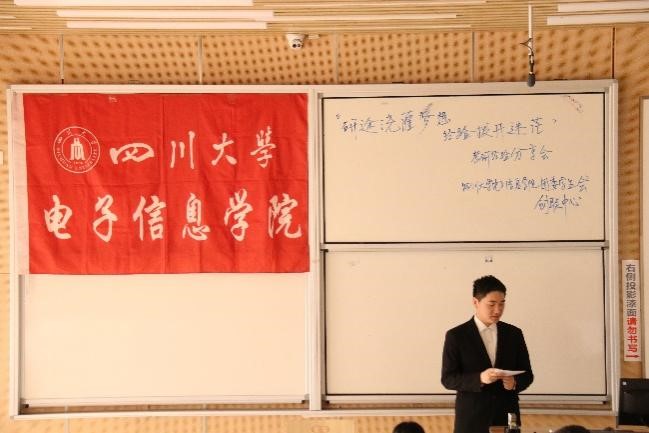 四川大学
电子信息学院
"研途浇灌梦想
经验拨开迷茫"
考研经验分享会
四川大学电子信息学院团委学生会
创联中心
右侧投影漆面请勿书写→